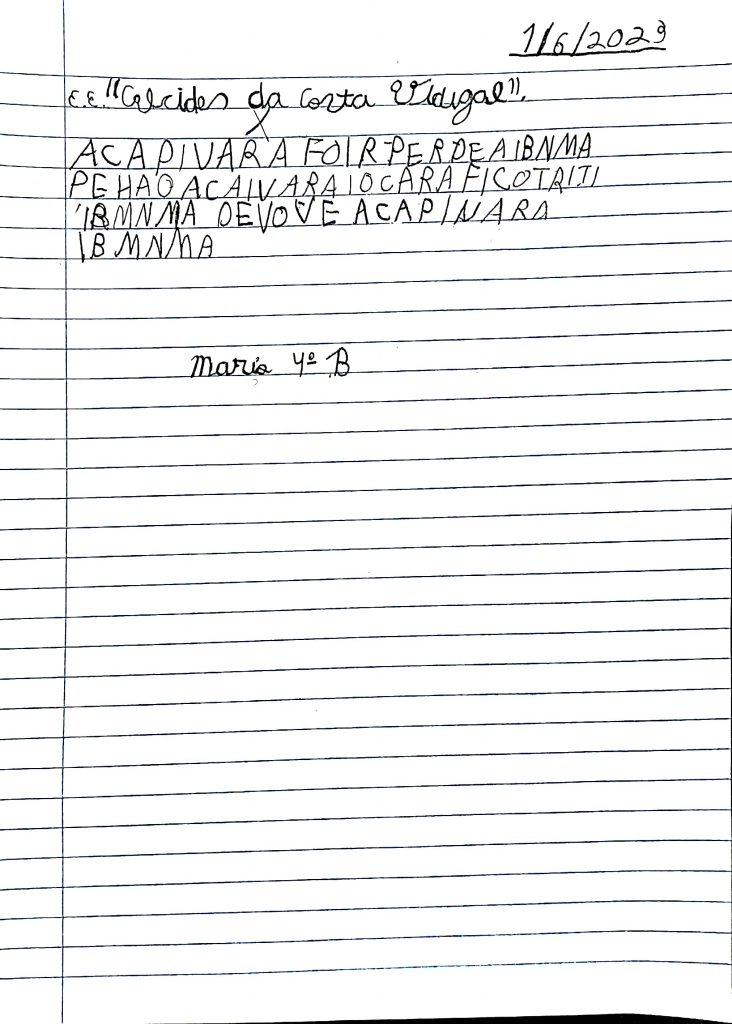 1/6/2023
E.E."Alcides da Costa Vidigal".
A CAPIVARA FOIR PERDEAIBNMA
PEHAO ACAIVARA IOCARA FICOTRITI
IBMNMA DEVOVE A CAPIVARA
IBMNMA
Maria 4º B